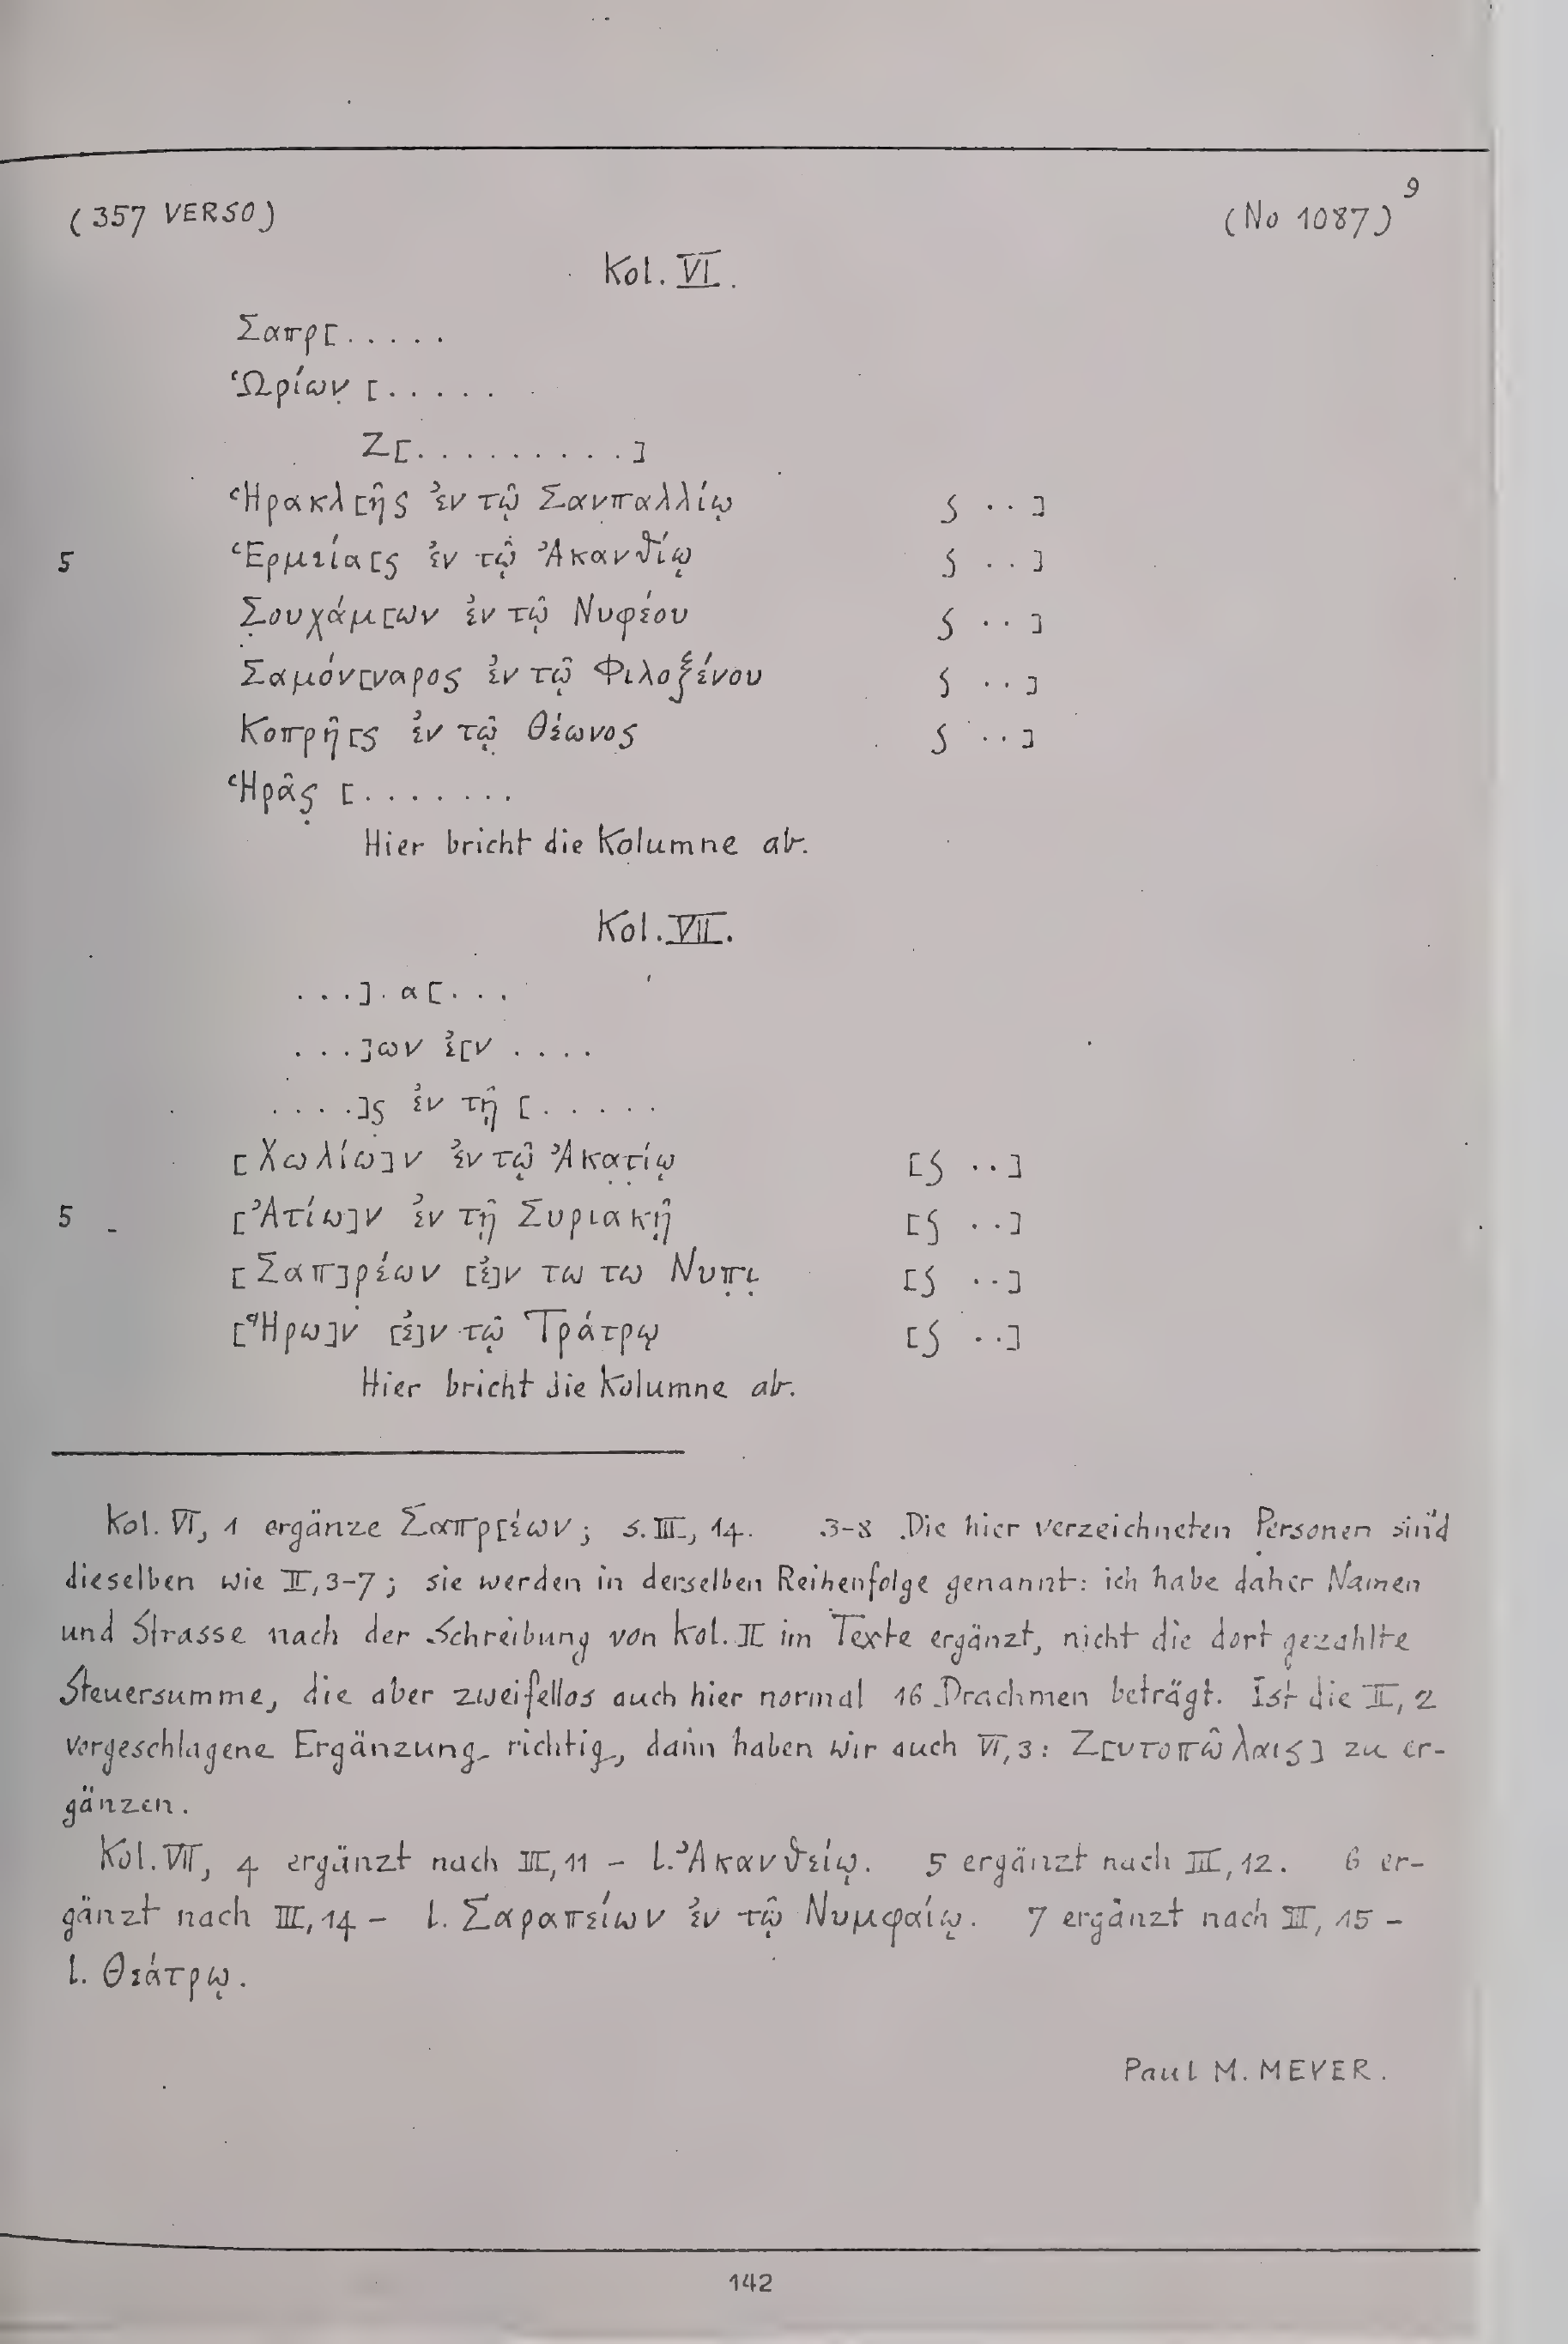 9
(357 VERSO) (No 1087)
Kol. VI.
Σαπρ[.....
Ὡρίων [.....
Ζ[.........]
Ἡρακλ[ῆς ἐν τῷ Σανπαλλίῳ ϛ ..]
5 Ἑρμεία[ς ἐν τῷ Ἀκανθίῳ ϛ ..]
Σουχάμ[ων ἐν τῷ Νυφέου ϛ ..]
Σαμόν[ναρος ἐν τῷ Φιλοξένου ϛ ..]
Κοπρῆ[ς ἐν τῷ Θέωνος ϛ ..]
Ἡρᾶς [.......
Hier bricht die Kolumne ab.
Kol. VII.
...]. α[...
...]ων ἐ[ν ....
....]ς ἐν τῇ [.....
[Χωλίω]ν ἐν τῷ Ἀκατίῳ [ϛ ..]
5 [Ἀτίω]ν ἐν τῇ Συριακῇ [ϛ ..]
[Σαπ]ρέων [ἐ]ν τω τω Νυπι [ϛ ..]
[Ἥρω]ν [ἐ]ν τῷ Τράτρῳ [ϛ ..]
Hier bricht die Kolumne ab.
Kol. VI, 1 ergänze Σαπρ[έων; s. III, 14. 3-8 Die hier verzeichneten Personen sind
dieselben wie II, 3-7; sie werden in derselben Reihenfolge genannt: ich habe daher Namen
und Strasse nach der Schreibung von Kol. II im Texte ergänzt, nicht die dort gezahlte
Steuersumme, die aber zweifellos auch hier normal 16 Drachmen beträgt. Ist die II, 2
vorgeschlagene Ergänzung richtig, dann haben wir auch VI, 3: Ζ[υτοπώλαις] zu er-
gänzen.
Kol. VII, 4 ergänzt nach III, 11 - l. Ἀκανθείῳ. 5 ergänzt nach III, 12. 6 er-
gänzt nach III, 14 - l. Σαραπείων ἐν τῷ Νυμφαίῳ. 7 ergänzt nach III, 15 -
l. Θεάτρῳ.
Paul M. MEYER.
142